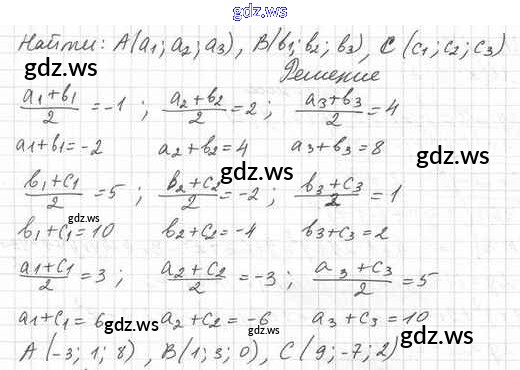 gdz.ws
Найти: A(a₁; a₂; a₃), B(b₁; b₂; b₃), C(c₁; c₂; c₃)
gdz.ws
Решение
gdz.ws
(a₁+b₁)/2 = -1; (a₂+b₂)/2 = 2; (a₃+b₃)/2 = 4
a₁+b₁=-2 a₂+b₂=4 a₃+b₃=8
gdz.ws
gdz.ws
(b₁+c₁)/2 = 5; (b₂+c₂)/2 = -2; (b₃+c₃)/2 = 1
gdz.ws
b₁+c₁=10 b₂+c₂=-4 b₃+c₃=2
gdz.ws
(a₁+c₁)/2 = 3; (a₂+c₂)/2 = -3; (a₃+c₃)/2 = 5
gdz.ws
a₁+c₁=6 a₂+c₂=-6 a₃+c₃=10
gdz.ws
gdz.ws
A(-3; 1; 8), B(1; 3; 0), C(9; -7; 2)
gdz.ws